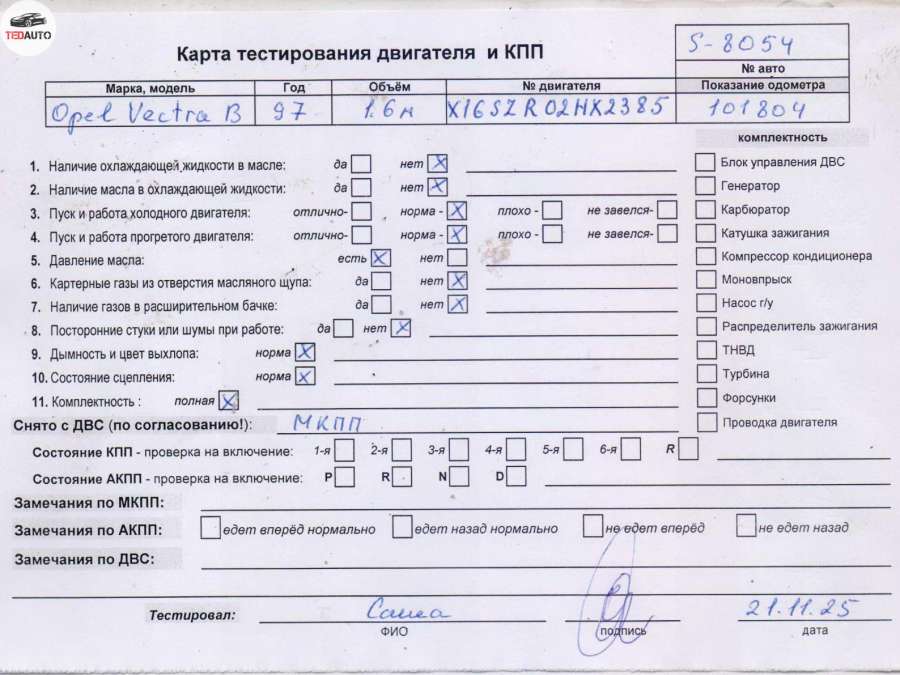 TEDAUTO
Карта тестирования двигателя и КПП
S-8054
№ авто
Марка, модель Год Объём № двигателя Показание одометра
Opel Vectra B 97 1.6м X16SZR02HX2385 101804
комплектность
1. Наличие охлаждающей жидкости в масле: да нет X
2. Наличие масла в охлаждающей жидкости: да нет X
3. Пуск и работа холодного двигателя: отлично- норма - X плохо - не завелся-
4. Пуск и работа прогретого двигателя: отлично- норма - X плохо - не завелся-
5. Давление масла: есть X нет
6. Картерные газы из отверстия масляного щупа: да нет X
7. Наличие газов в расширительном бачке: да нет X
8. Посторонние стуки или шумы при работе: да нет X
9. Дымность и цвет выхлопа: норма X
10. Состояние сцепления: норма X
11. Комплектность : полная X
Блок управления ДВС
Генератор
Карбюратор
Катушка зажигания
Компрессор кондиционера
Моновпрыск
Насос г/у
Распределитель зажигания
ТНВД
Турбина
Форсунки
Проводка двигателя
Снято с ДВС (по согласованию!): МКПП
Состояние КПП - проверка на включение: 1-я 2-я 3-я 4-я 5-я 6-я R
Состояние АКПП - проверка на включение: P R N D
Замечания по МКПП:
Замечания по АКПП: едет вперёд нормально едет назад нормально не едет вперёд не едет назад
Замечания по ДВС:
Тестировал: Саша 21.11.25
ФИО подпись дата